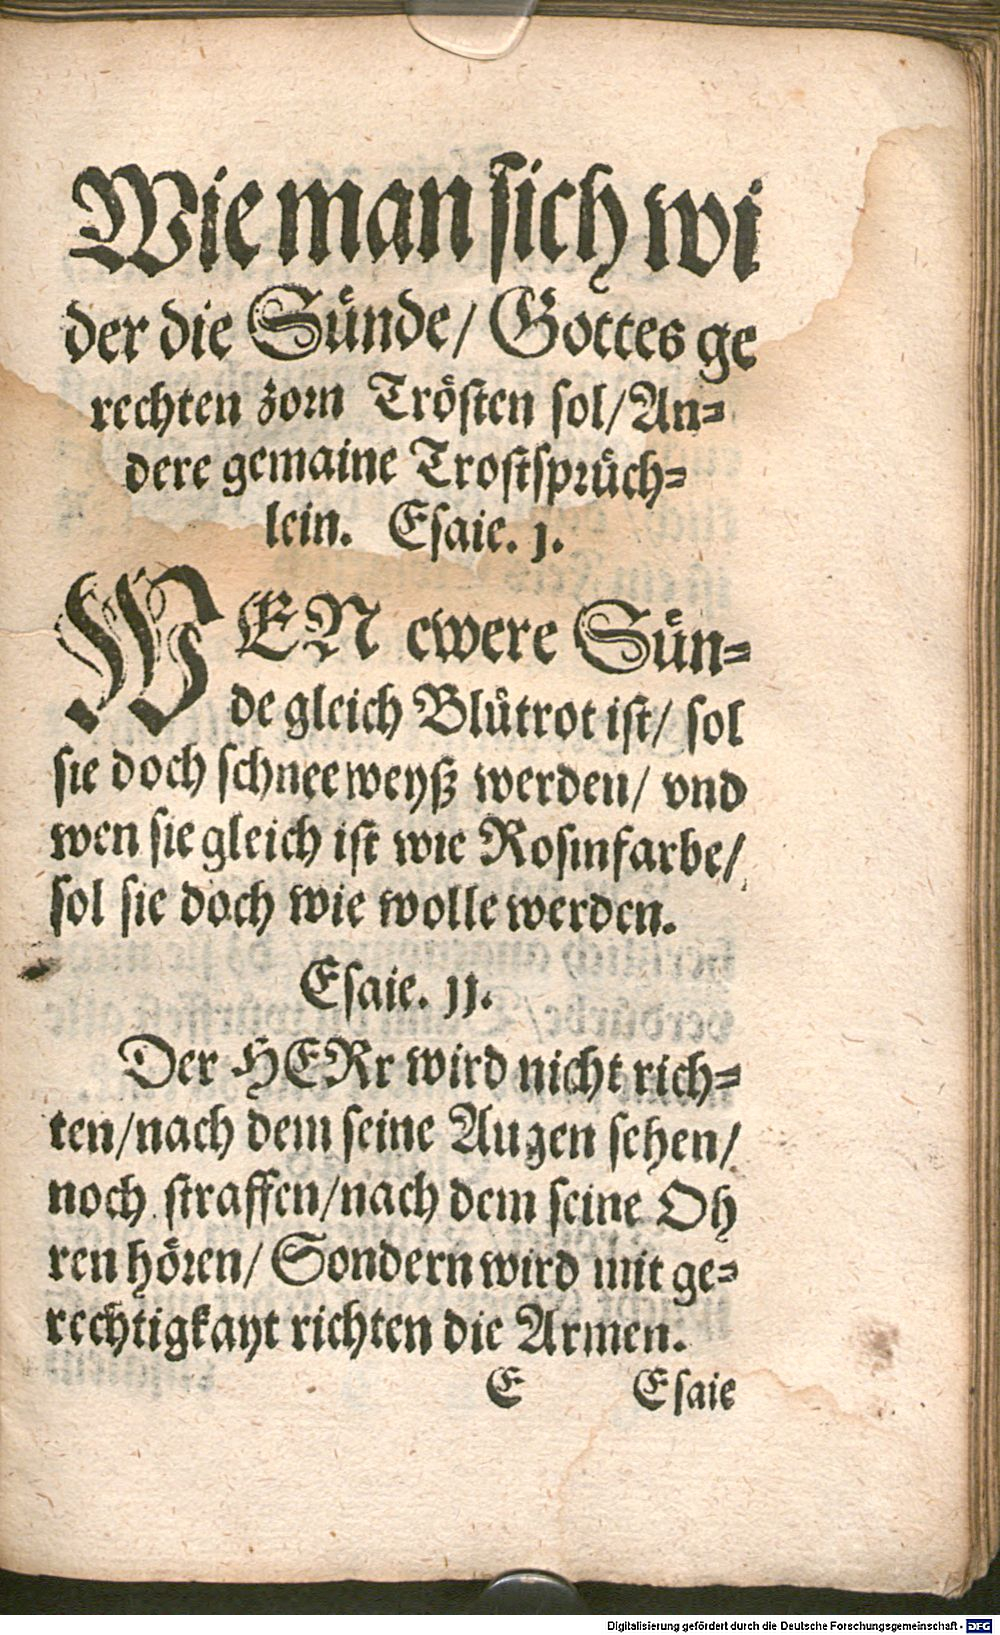 Wie man sich wi
der die Sünde/ Gottes ge
rechten zorn Trösten sol/ An=
dere gemaine Trostsprüch=
lein. Esaie. j.
WEN ewere Sün=
de gleich Blütrot ist/ sol
sie doch schneeweyß werden/ vnd
wen sie gleich ist wie Rosinfarbe/
sol sie doch wie wolle werden.
Esaie. jj.
Der HERr wird nicht rich=
ten/ nach dem seine Augen sehen/
noch straffen/ nach dem seine Oh
ren hören/ Sondern wird mit ge=
rechtigkayt richten die Armen.
E Esaie
Digitalisierung gefördert durch die Deutsche Forschungsgemeinschaft - DFG